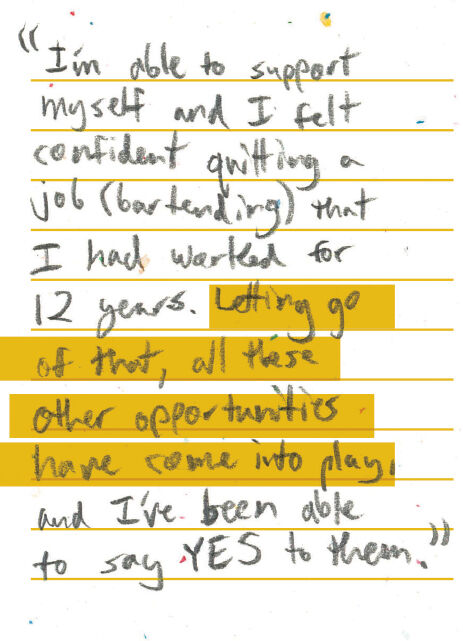 "I'm able to support
myself and I felt
confident quitting a
job (bartending) that
I had worked for
12 years. Letting go
of that, all these
other opportunities
have come into play,
and I've been able
to say YES to them."